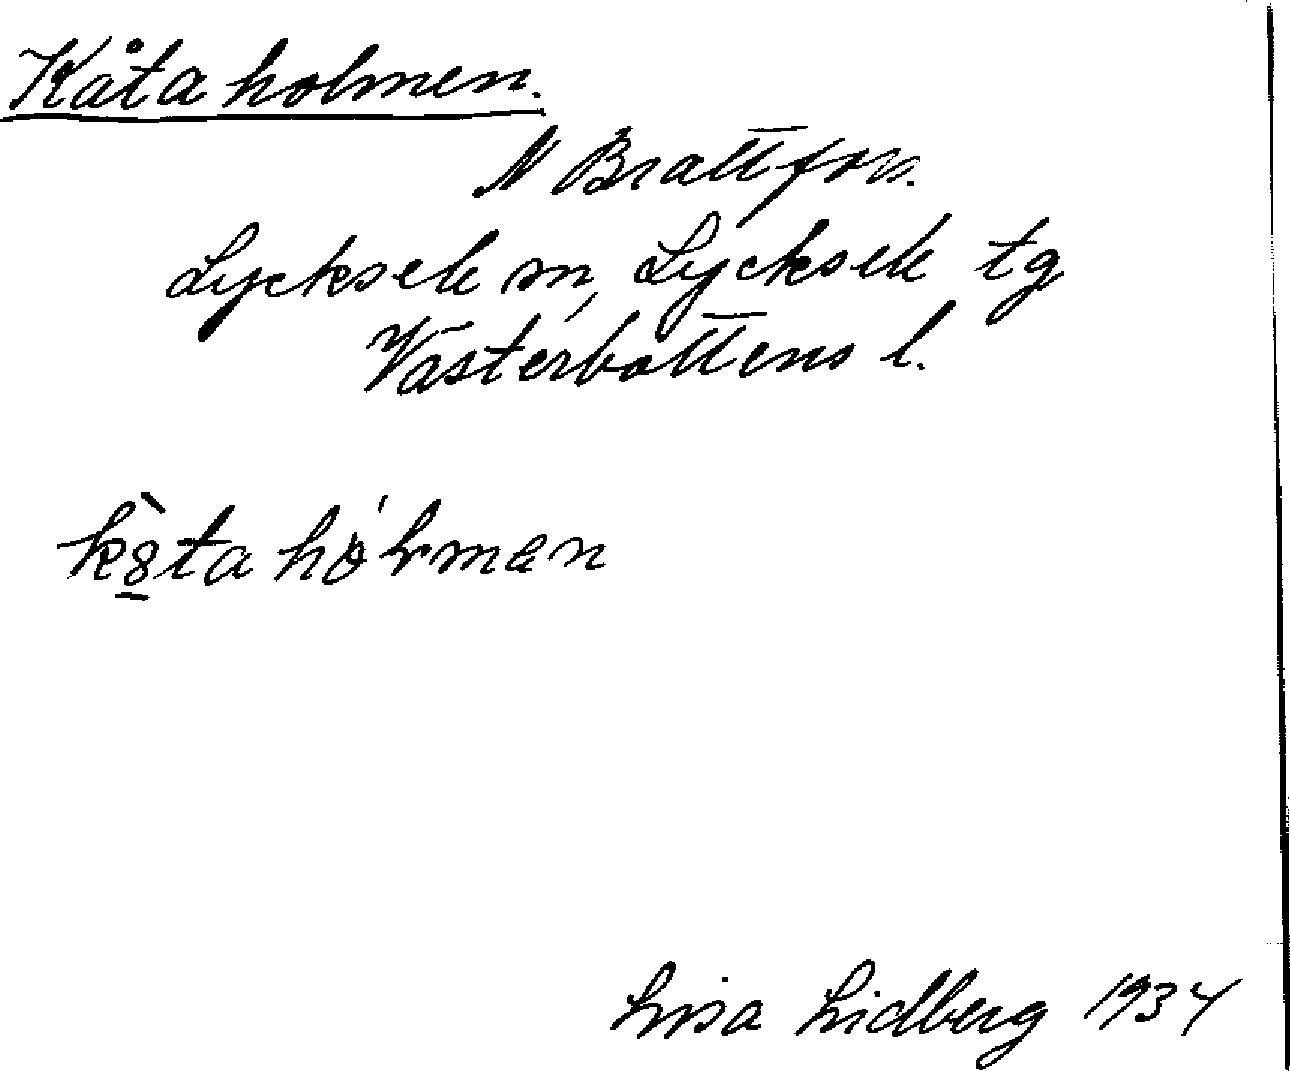 Kåtaholmen.
N Brattfors.
Lycksele sn, Lycksele tg
Västerbottens l.
Lisa Lidberg 1934